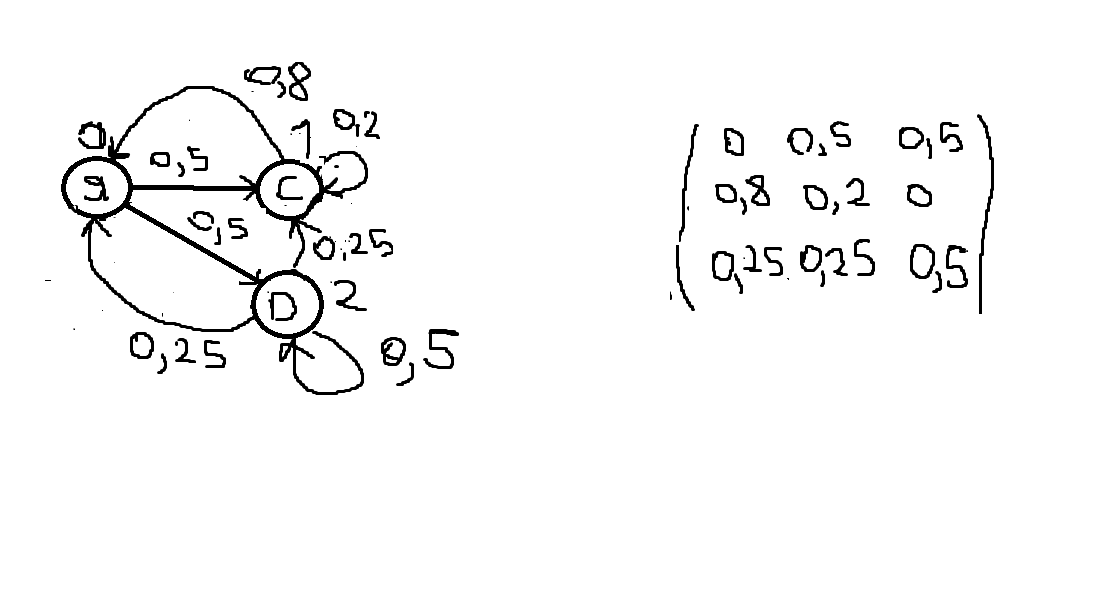 0,8
0
1
0,2
0,5
Я
C
0,5
0,25
D
2
0,25
0,5
0 0,5 0,5
0,8 0,2 0
0,25 0,25 0,5